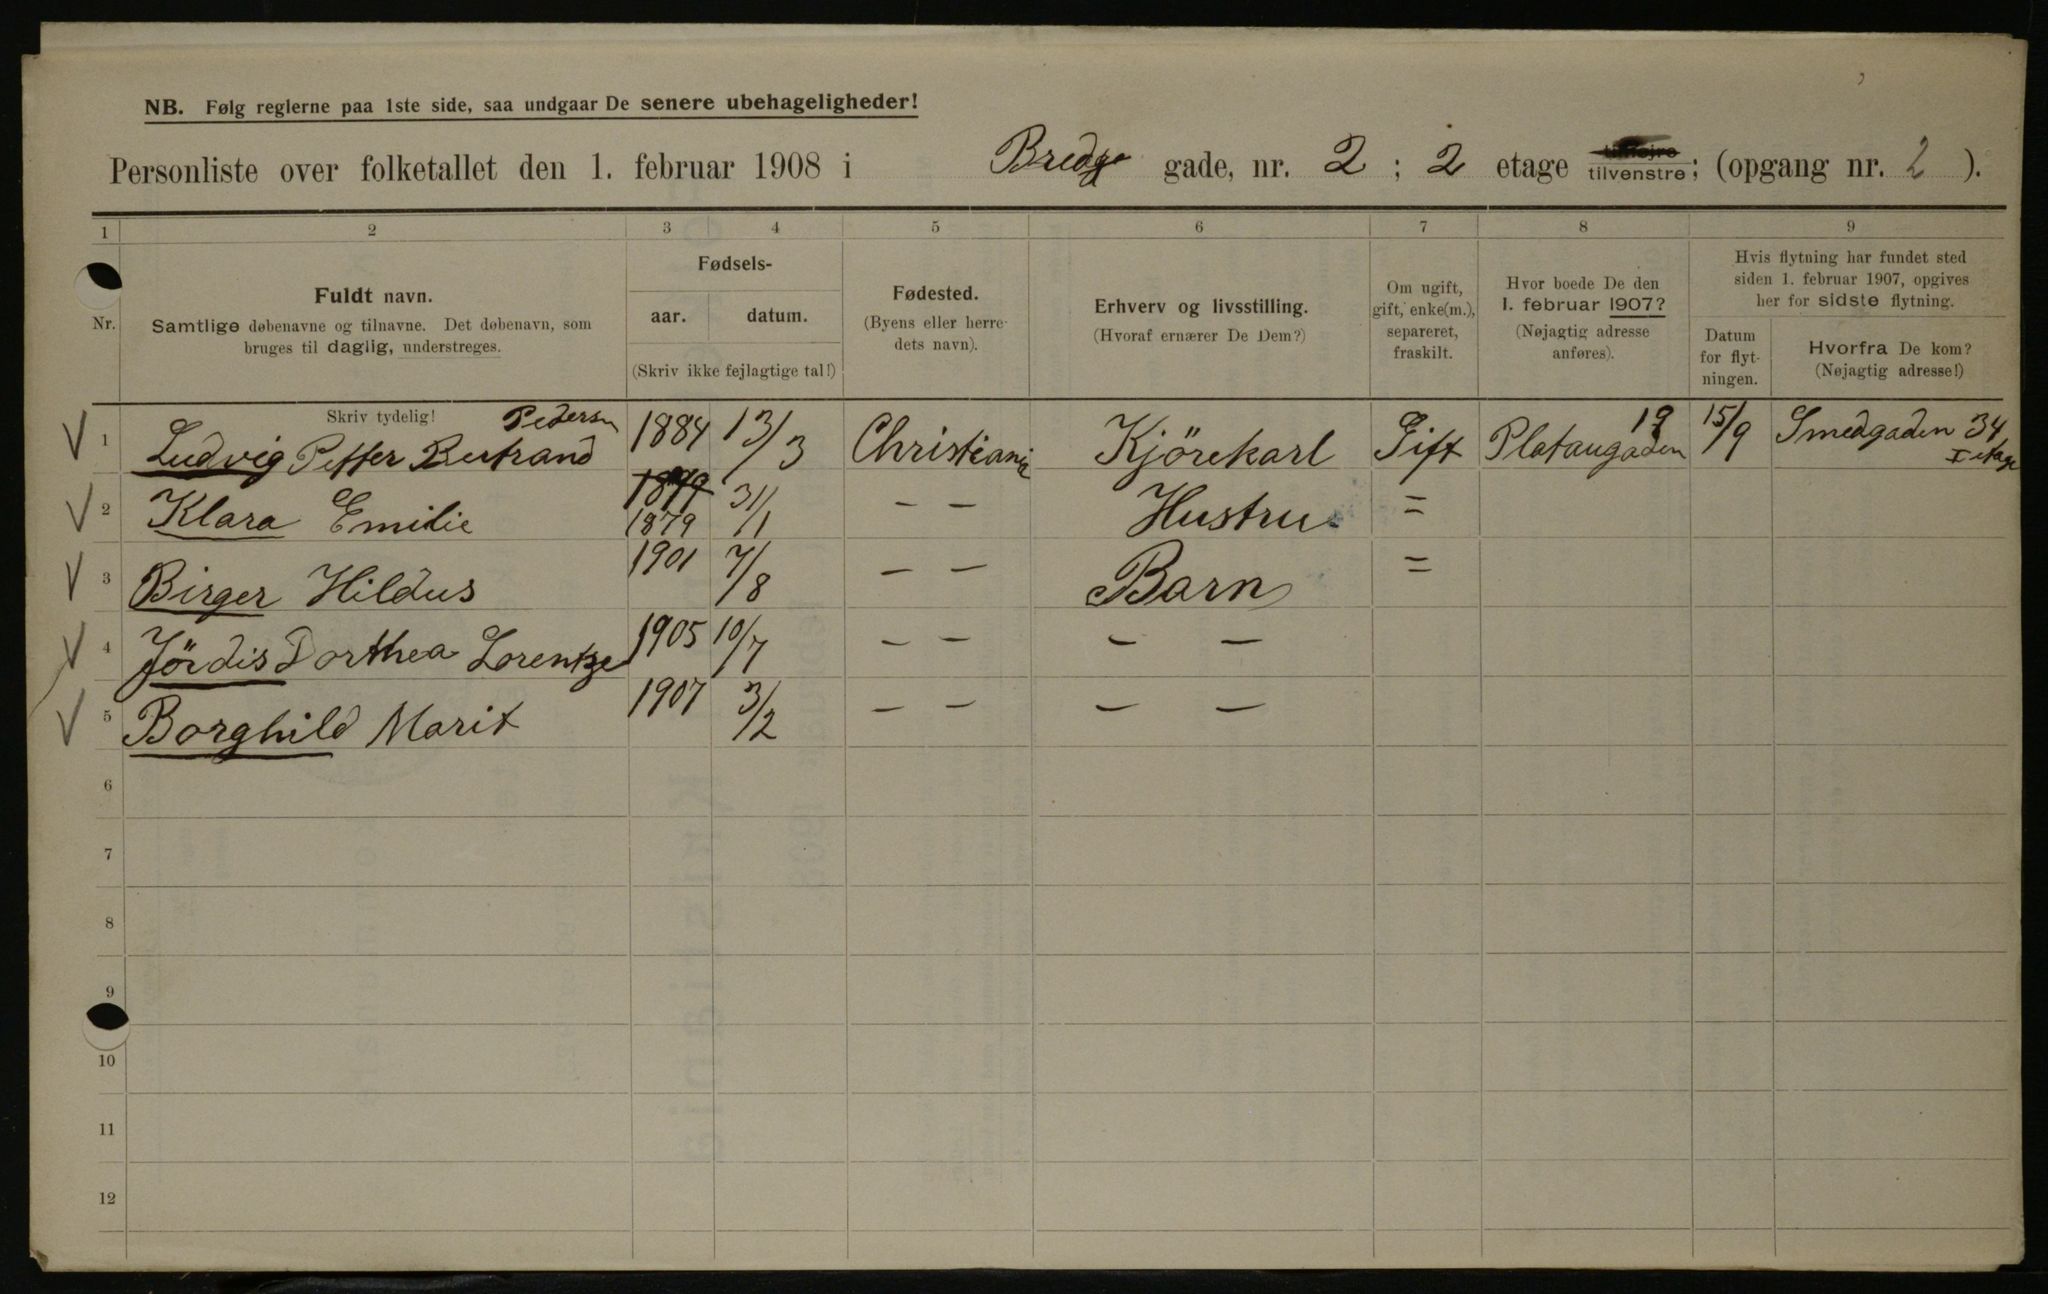 NB. Følg reglerne paa 1ste side, saa undgaar De senere ubehageligheder!
Personliste over folketallet den 1. februar 1908 i Bredg gade, nr. 2 ; 2 etage tilhøjre tilvenstre; (opgang nr. 2 ).
1 2 3 4 5 6 7 8 9
Nr.
Fuldt navn.
Samtlige døbenavne og tilnavne. Det døbenavn, som
bruges til daglig, understreges.
Fødsels-
aar. datum.
(Skriv ikke fejlagtige tal!)
Fødested.
(Byens eller herre-
dets navn).
Erhverv og livsstilling.
(Hvoraf ernærer De Dem?)
Om ugift,
gift, enke(m.),
separeret,
fraskilt.
Hvor boede De den
1. februar 1907?
(Nøjagtig adresse
anføres).
Hvis flytning har fundet sted
siden 1. februar 1907, opgives
her for sidste flytning.
Datum
for flyt-
ningen.
Hvorfra De kom?
(Nøjagtig adresse!)
Skriv tydelig!
V 1 Ludvig Petter Bertrand Pedersn 1884 13/3 Christiania Kjörekarl Gift Plataugaden 19 15/9 Smedgaden 34 I etage
V 2 Klara Emilie 1879 1879 31/1 — — Hustru =
V 3 Birger Hildus 1901 7/8 — — Barn =
V 4 Jördis Dorthea Lorentze 1905 10/7 — — — —
V 5 Borghild Marit 1907 3/2 — — — —
6
7
8
9
10
11
12